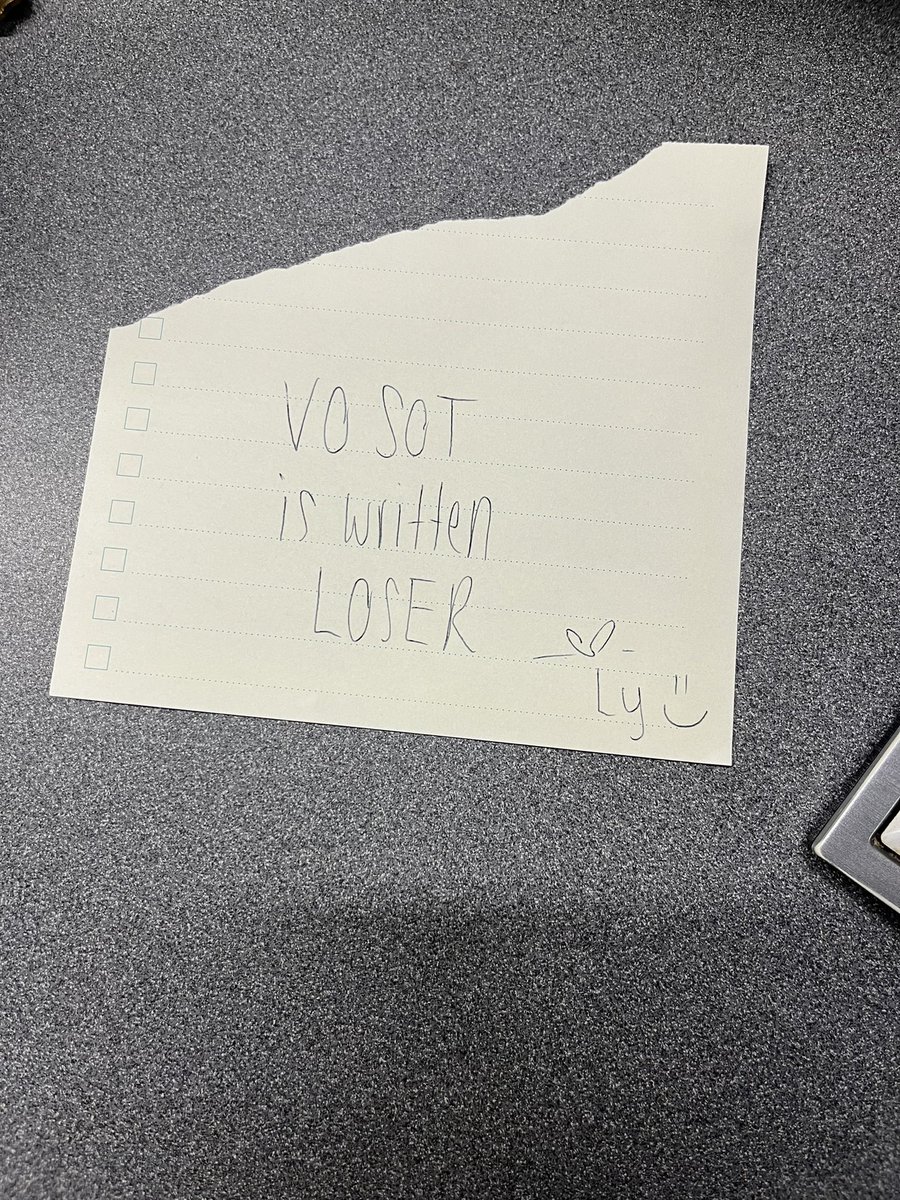 VO SOT
is written
LOSER
Ly